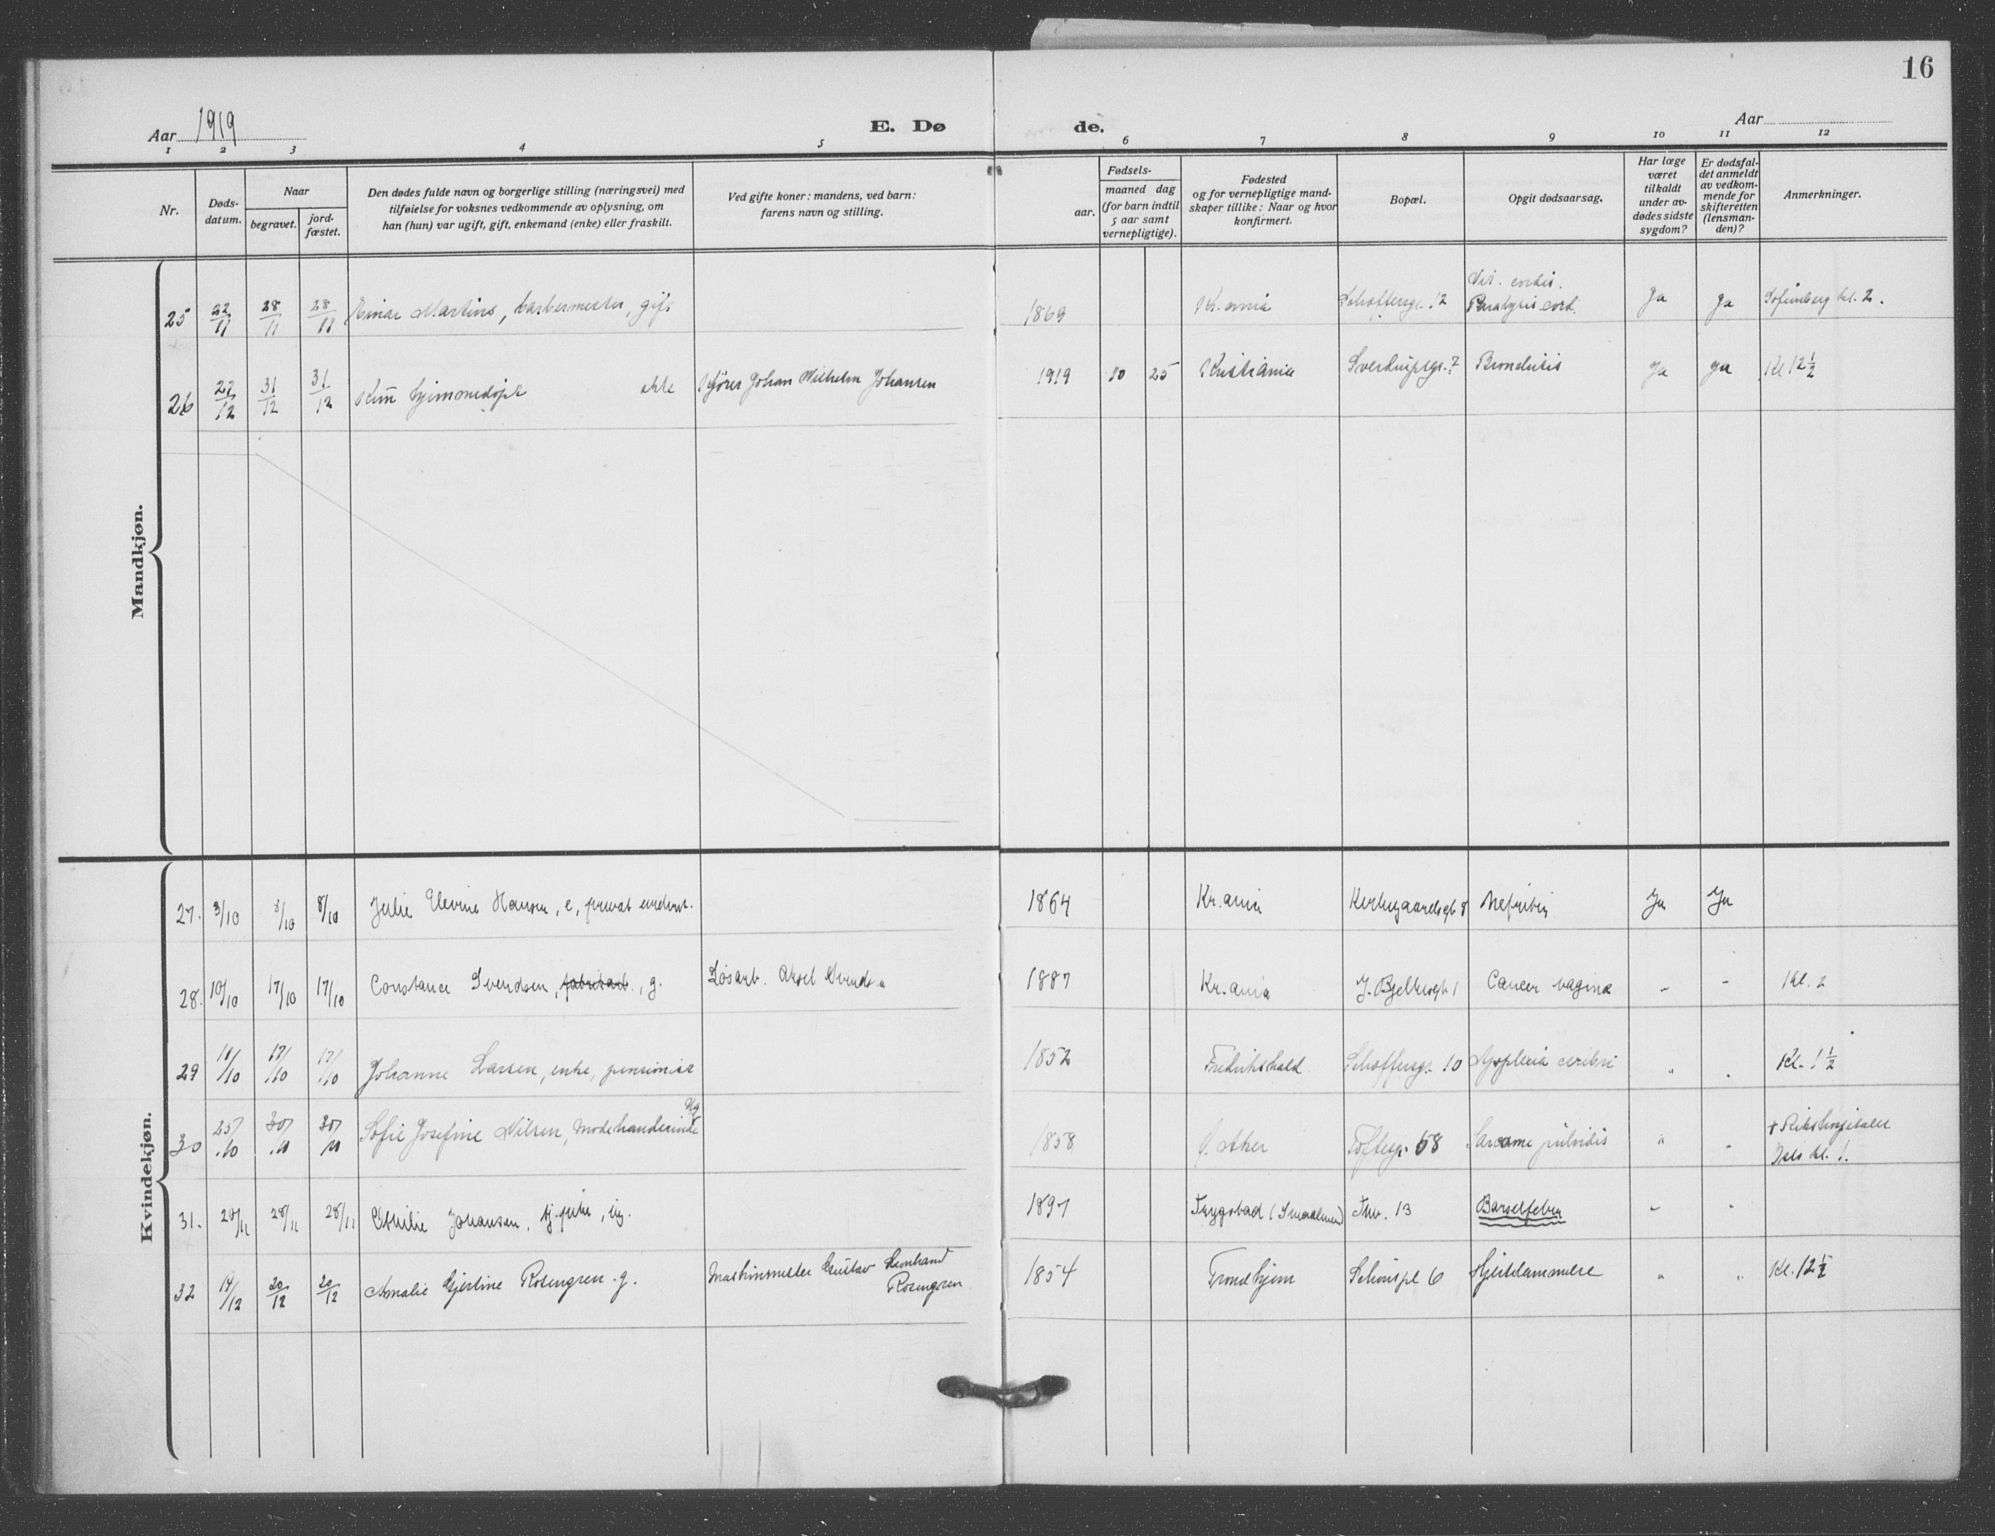 16
Aar 1919
E. Dø
de.
Aar
1 2 3 4 5 6 7 8 9 10 11 12
Nr.
Døds-
datum.
Naar
begravet.
jord-
fæstet.
Den dødes fulde navn og borgerlige stilling (næringsvei) med
tilføielse for voksnes vedkommende av oplysning, om
han (hun) var ugift, gift, enkemand (enke) eller fraskilt.
Ved gifte koner: mandens, ved barn:
farens navn og stilling.
Fødsels-
aar.
maaned dag
(for barn indtil
5 aar samt
vernepligtige).
Fødested
og for vernepligtige mand-
skaper tillike: Naar og hvor
konfirmert.
Bopæl.
Opgit dødsaarsag.
Har læge
været
tilkaldt
under av-
dødes sidste
sygdom?
Er dødsfal-
det anmeldt
av vedkom-
mende for
skifteretten
(lensman-
den)?
Anmerkninger.
Mandkjøn.
25 22/11 28/11 28/11 Einar Martins, barbermester, gift 1869 Kr.ania Schøftersgr. 12 Vit. cordis. Paralysis cord. Ja Ja Sofienberg kl. 2.
26 22/12 31/12 31/12 Kun hjemmedøpt ekte Kjører Johan Wilhelm Johansen 1919 10 25 Kristiania Sverdrupsgt. 7 Bronchitis Ja Ja Kl 12 1/2
Kvindekjøn.
27. 3/10 8/10 8/10 Julie Elevine Hansen, e, privat underst. 1864 Kr.ania Kirkegaardsgt 8 Nefritis Ja Ja
28. 10/10 17/10 17/10 Constance Svendsen, fabrikarb., g. Løsarb. Aksel Svendsen 1887 Kr.ania J. Bjelkesgt 1 Cancer vaginæ " " Kl. 2
29 11/10 17/10 17/10 Johanne Larsen, enke, pensionist 1852 Fredrikshald Schøftersgr. 10 Apoplexia cerebri " " Kl. 1 1/2
30 25/10 30/10 30/10 Sofie Josefine Nilsen, Modehandlerinde Ug 1858 Ø. Aker Toftesgt. 68 Sarcome pulvidis " " + Rikshospitalet
kl. 1.
31. 20/11 28/11 28/11 Othilie Johansen, tj.pike, ug. 1897 Trygstad (Smaalenene) Thv. 13 Barselfeber " "
32 14/12 20/12 20/12 Amalie Gjertine Rosengren g. Maskinmester Gustav Leonhard
Rosengren 1854 Trondhjem Schouspl 6 Hjertelammelse " " Kl. 12 1/2